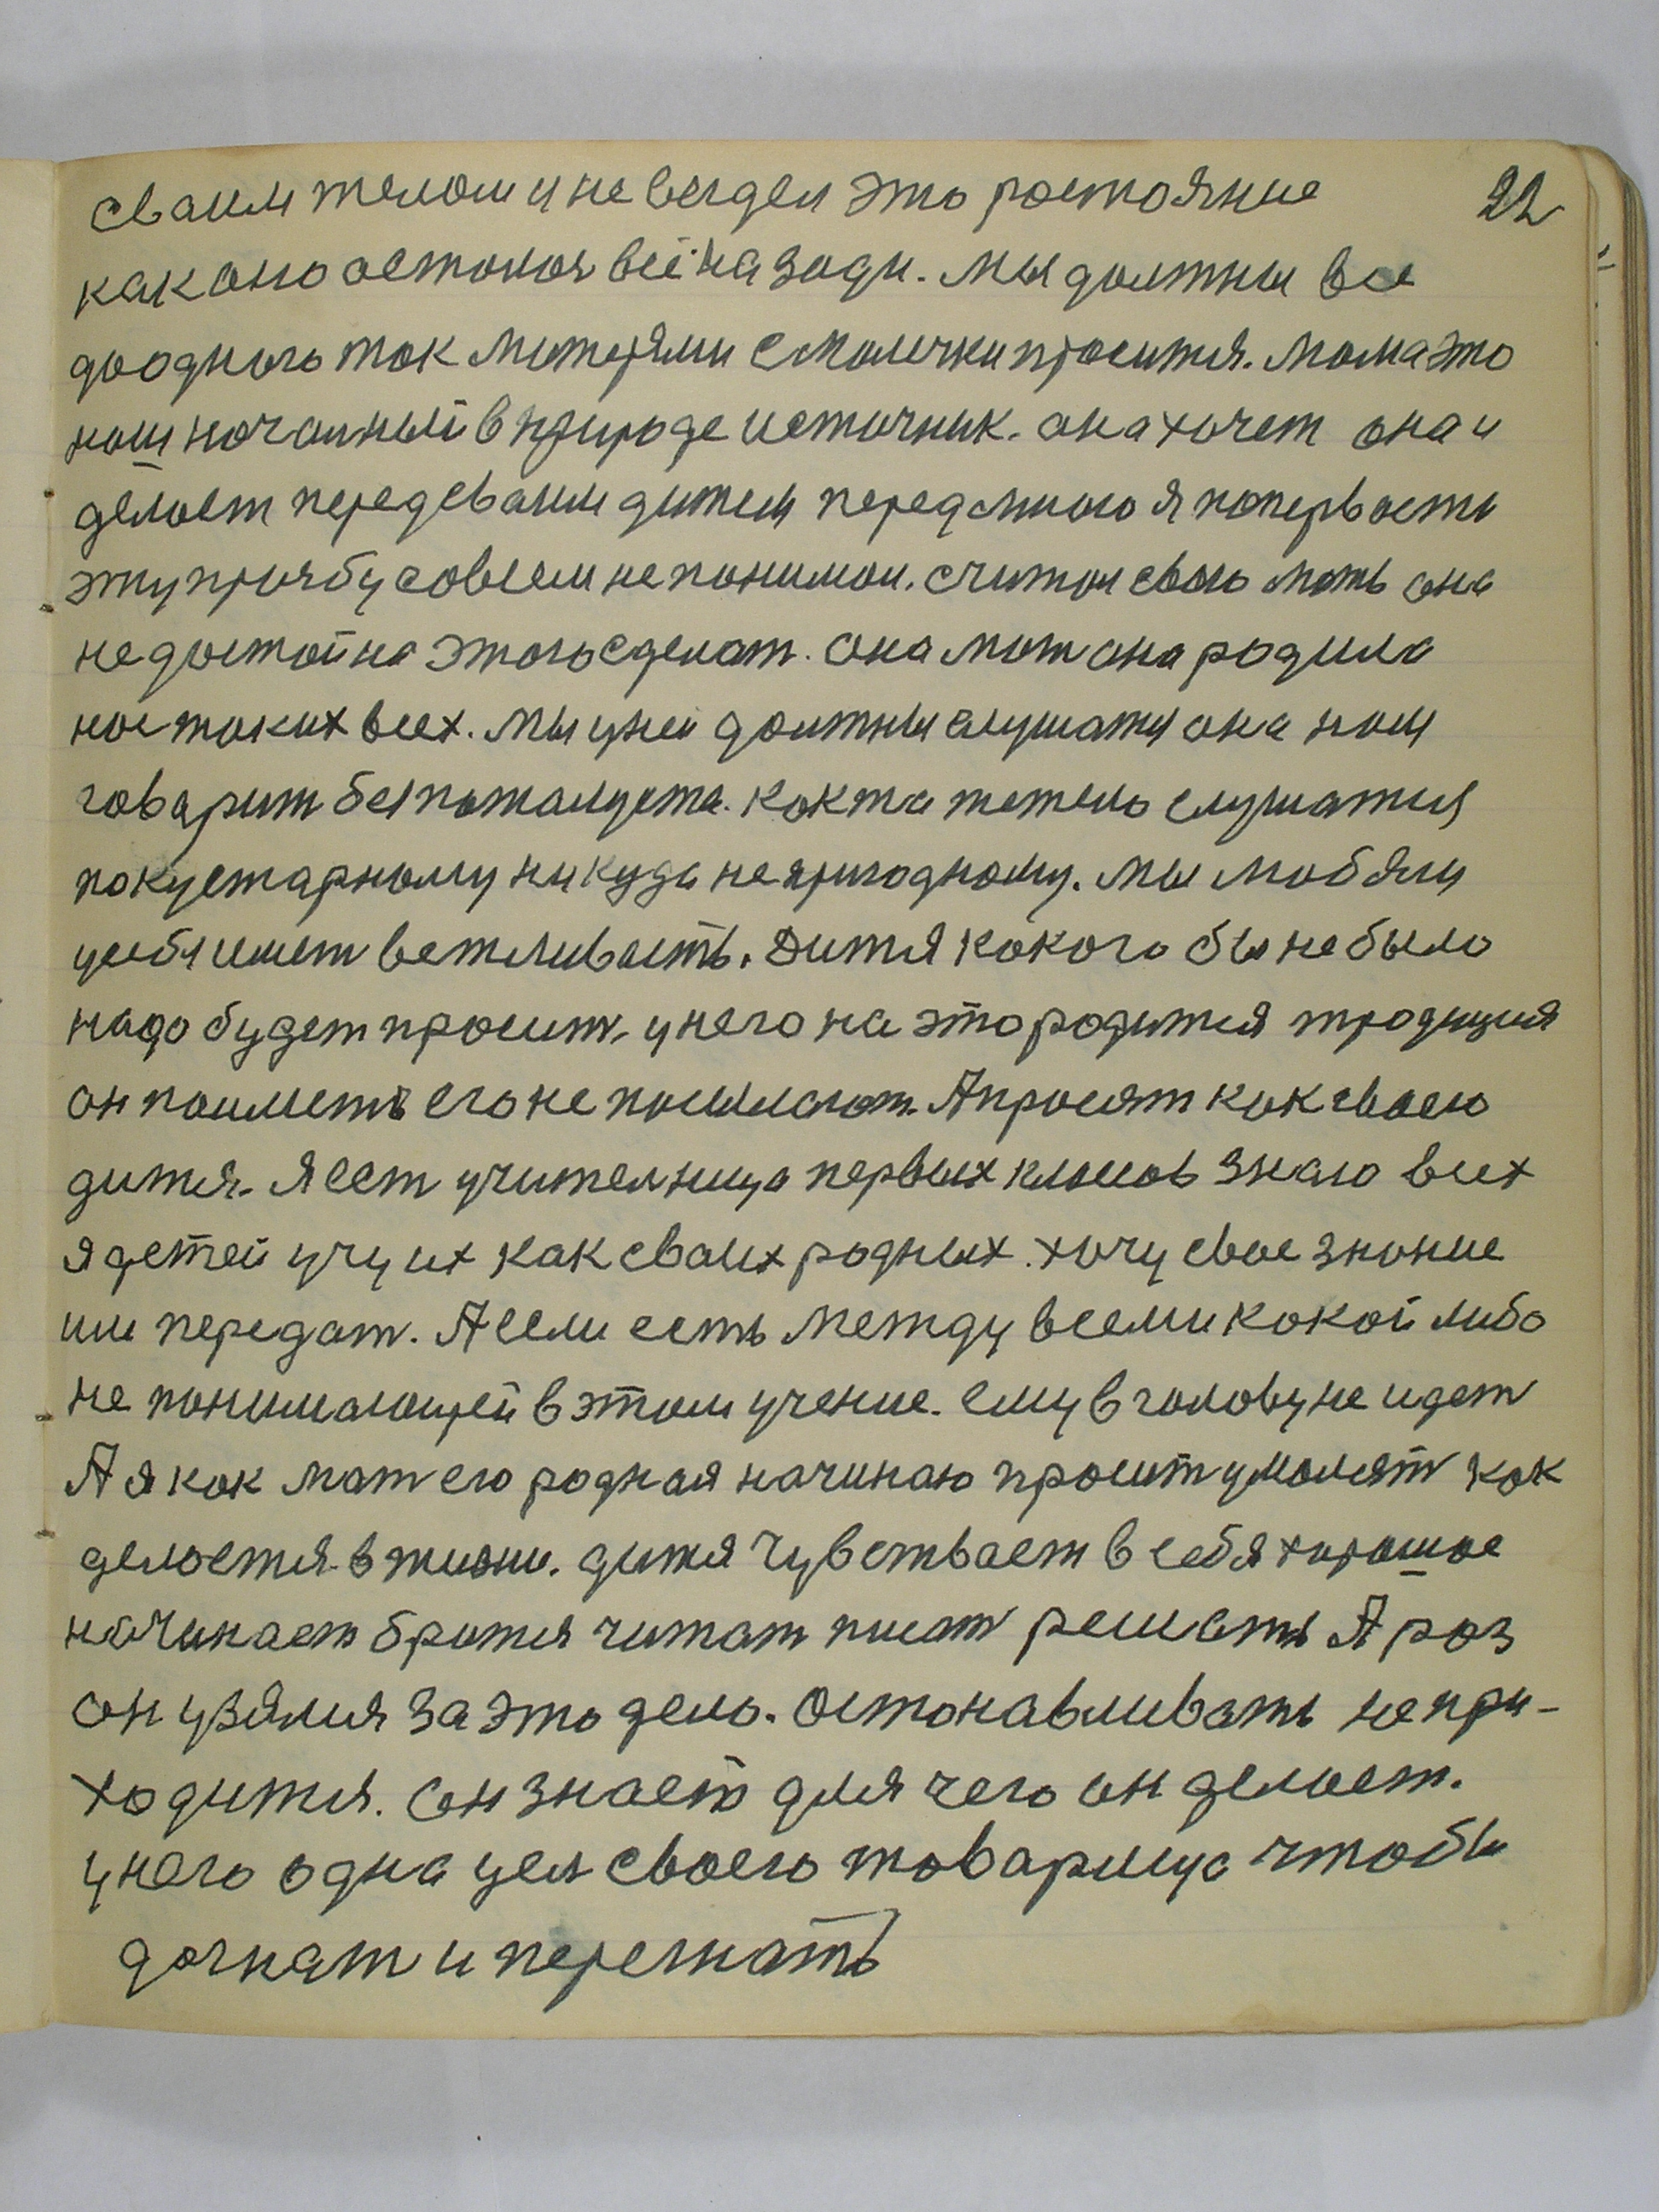 сваим телом и не видел это ростояние 22
как оно осталоя всё на зади. Мы должны все
до одного так матерями с малечки просится. Мама это
наш начальный в природе источник. она хочет она и
делоет перед сваим дитем передамною я попервасти
эту прозбу совсем не понимал. считал сваю мать она
не достойна этого сделат. Она мат она родила
нас таких всех. Мы уней должны слушатя она нам
говарит без пожалуста. как та тежело слушатия
по кустарному никуда непригодному. Мы людями
усебя имет вежливасть. Дитя какого бы небыло
надо будет просит, унего на это родится традиция
он поиметь его не посылают. А просят как сваего
дитя. Я ест учителница первых класов знаю всех
я детей учу их как сваих родных. хочу свое знание
им передат. А если есть между всеми какой либо
не понимающей в этом учение. ему в голову не идет
А я как мат его родная начинаю просит умолят как
делоется в жизни. дитя Чувствает в себя хорошое
начинает братя читат писат решать А раз
он узялия за это дело. Останавливать непри-
ходится. Он знает для чего он делоет.
унего одна цел своего товарища чтобы
догнат и перегнать